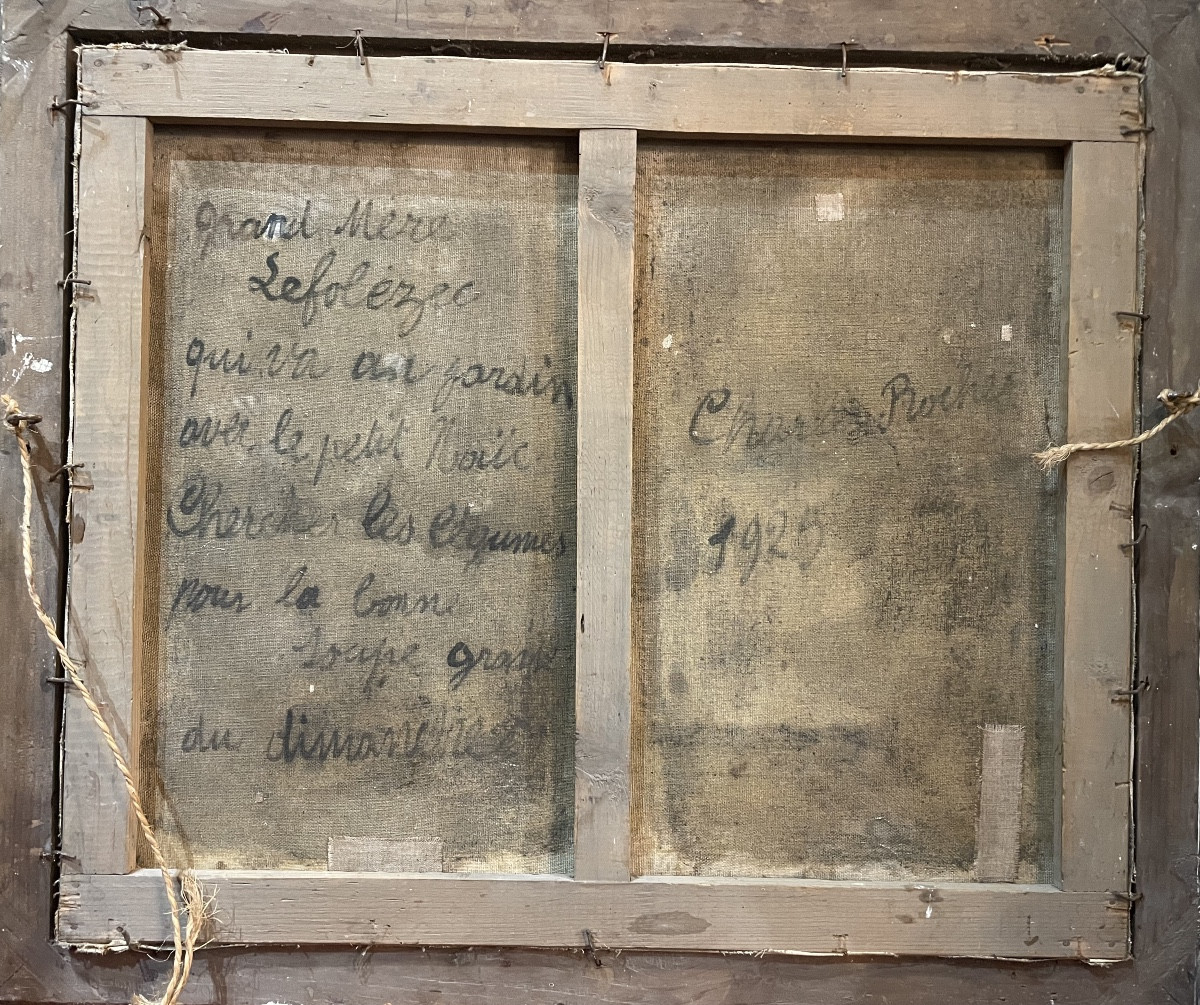 grand Mère
Lefolézec
qui va au jardin
avec le petit Noïc
Chercher les légumes
pour la bonne
soupe grasse
du dimanche
Charles Rochee
192